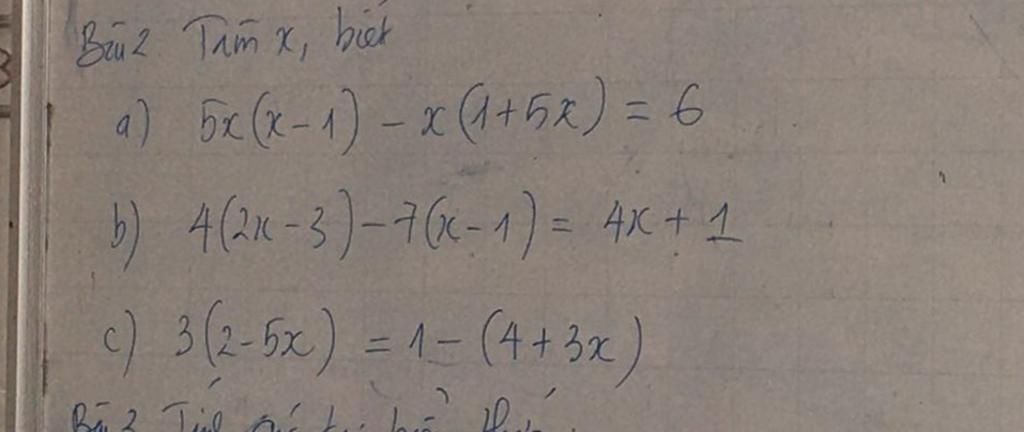 Bài 2 Tìm x, biết
a) 5x(x-1) - x(1+5x) = 6
b) 4(2x-3) - 7(x-1) = 4x + 1
c) 3(2-5x) = 1 - (4+3x)
Bài 3 Tính giá trị biểu thức